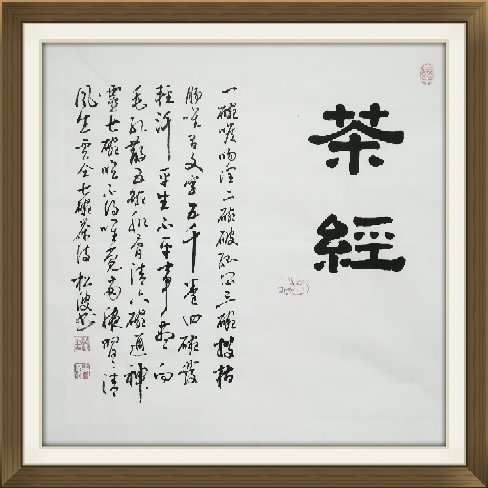 茶經
一碗喉吻潤二碗破孤悶三碗搜枯
腸唯有文字五千卷四碗發
輕汗平生不平事盡向
毛孔散五碗肌骨清六碗通神
靈七碗吃不得唯覺兩腋習々清
風生盧仝七碗茶詩 松波书